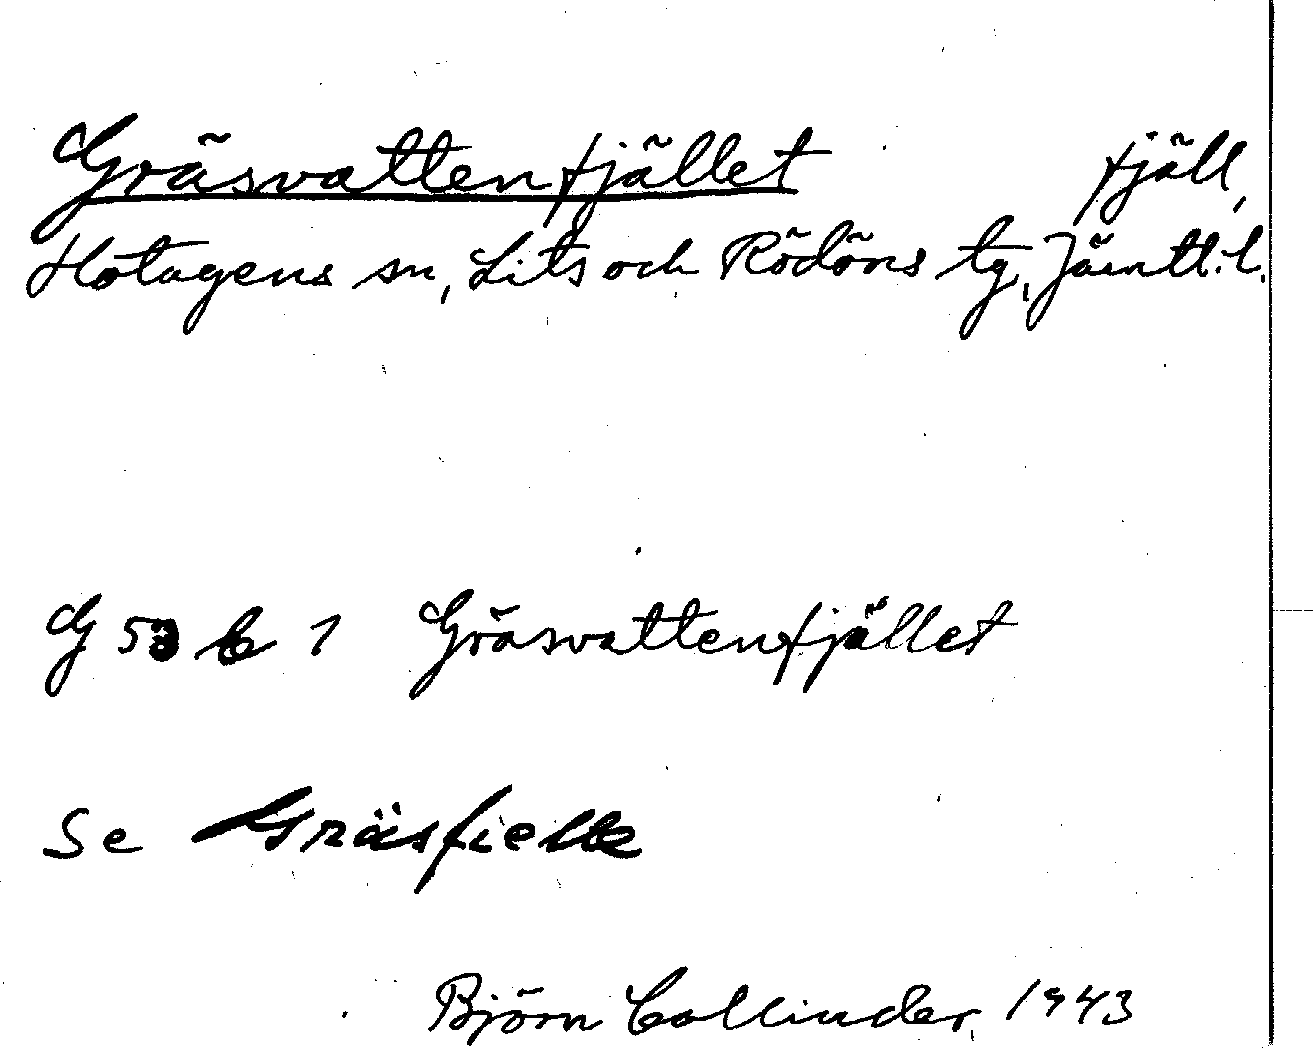 Gräsvattenfjället fjäll,
Hotagens sn, Lits och Rödöns tg, Jämtl. l.
G 53 b 1 Gräsvattenfjället
Se Gräsfielle
Björn Collinder, 1943